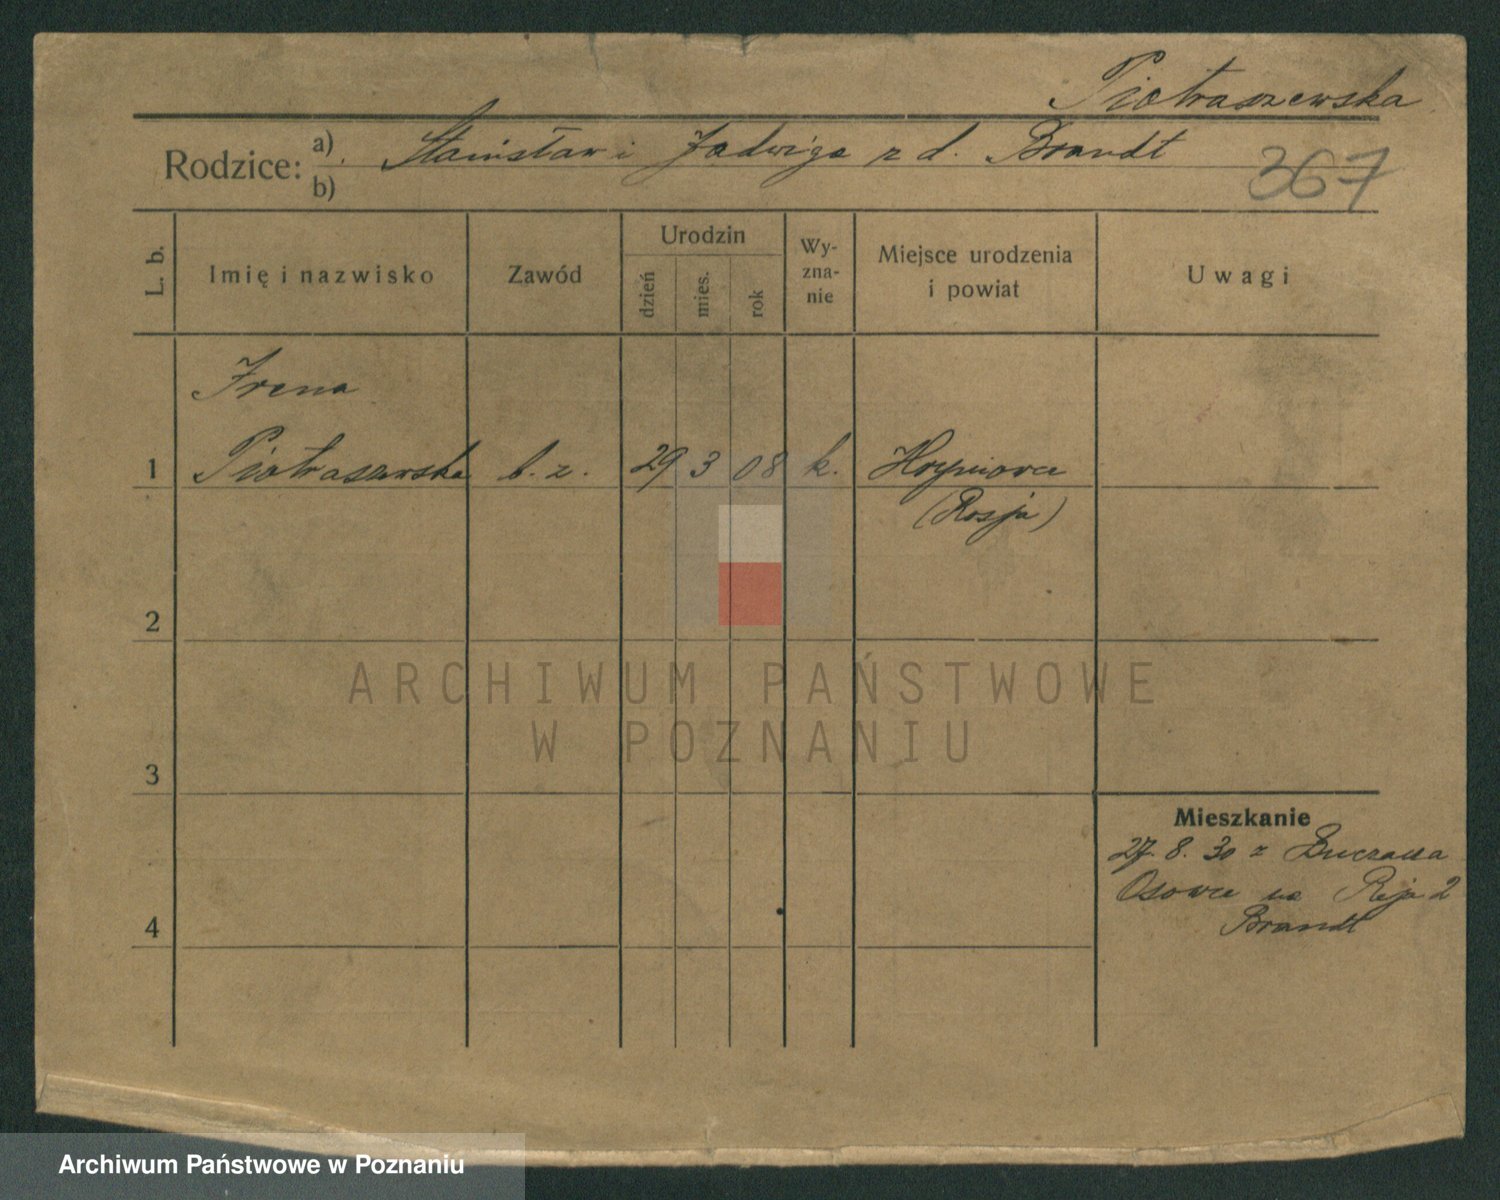 Piotraszewska
Rodzice: a) Stanisław i Jadwiga z d. Brandt
b)
367
L. b.
Imię i nazwisko
Zawód
Urodzin
dzień
mies.
rok
Wy-
zna-
nie
Miejsce urodzenia
i powiat
Uwagi
Irena
1 Piotraszewska b. z. 29 3 08 k.
(Rosja)
2
ARCHIWUM PAŃSTWOWE
W POZNANIU
3
Mieszkanie
27. 8. 30 z
Osowce na Reja 2
4 Brandt
Archiwum Państwowe w Poznaniu